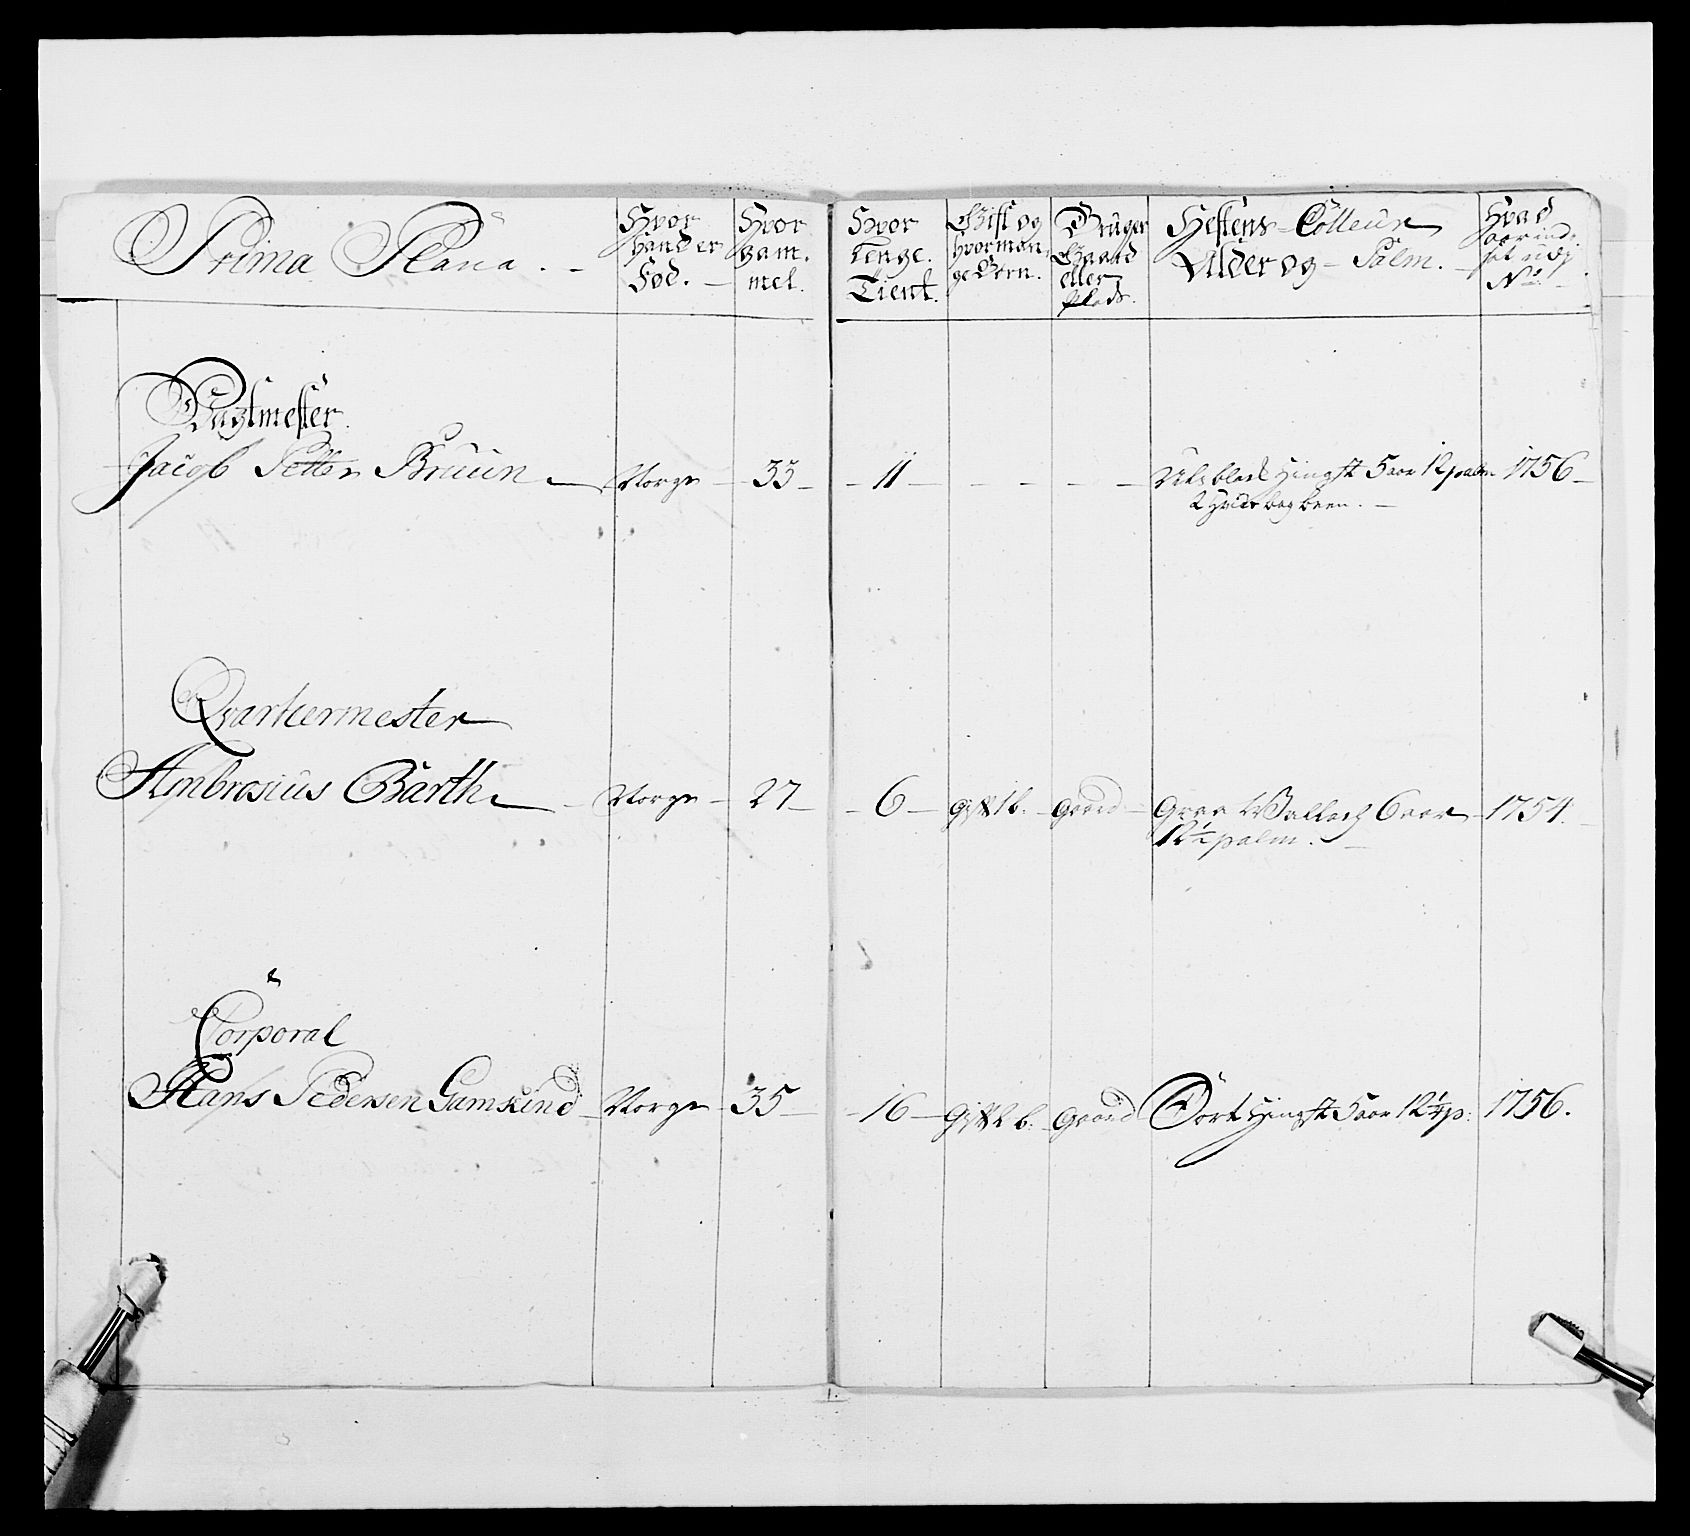 Prima Plana.
Hvor
hand er
Fød.
Hvor
gam-
mel.
Hvor
lenge
Tient.
Gift og
hvor man-
ge Børn.
Bruger
Gaard
eller
Plads.
Hestens Colleur
Alder og Palm.
Hvad
aar ind-
No
Vagtmester
Jacob Petter Bruun Norge 33 11 - - - - Hingst 5 aar 12 palm 1756
2 hvide bag been.
Qvartermester
Ambrosius Barth Norge 27 6 Gift 1 b. Gaard Graa Wallach 6 aar 1754.
12½ palm.
Corporal
Hans Pedersen Gamkind Norge 35 16 Gift 2 b. Gaard Sort Hingst 5 aar 12½ p: 1756.